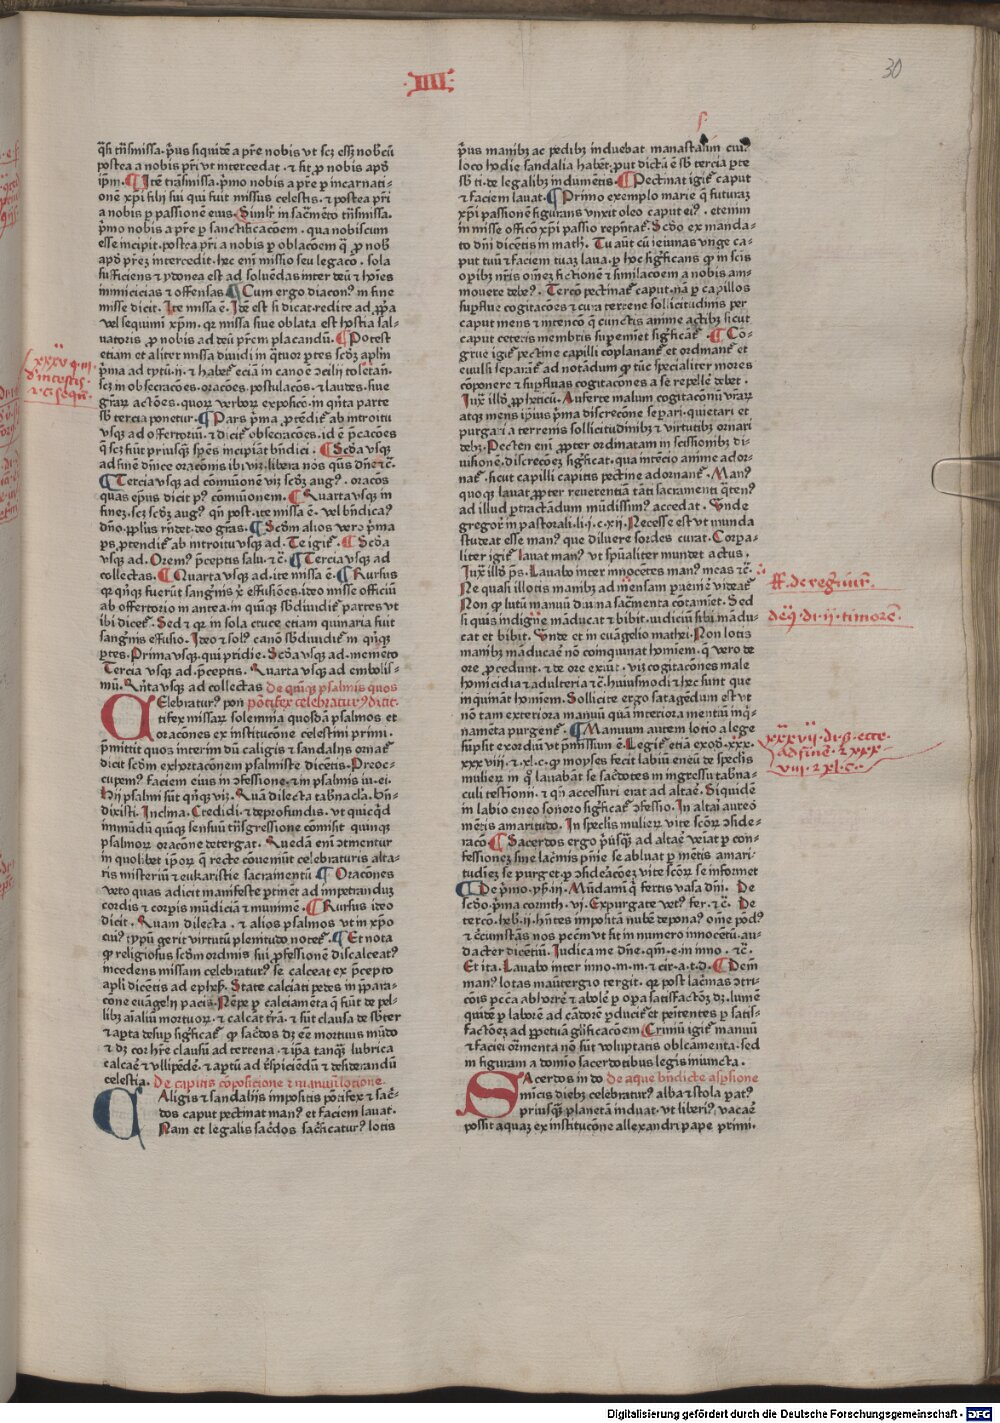 30
IIII
q̄si trāsmissa. p̄us siquidē a p̄re nobis vt scꝫ esset nobiscū
postea a nobis p̄ri vt intercedat ⁊ sit ꝓ nobis apd̄
ip̄m. Itē trāsmissa. p̄mo nobis a p̄re ꝑ incarnati⸗
onē xp̄i filij sui qui fuit missus celestis. ⁊ postea p̄ri
a nobis ꝑ passionē eius. Simlr̄ in sacramēto trāsmissa.
p̄mo nobis a p̄re ꝑ sanctificacōem. qua nobiscum
esse incipit. postea p̄ri a nobis ꝑ oblacōem
apd̄ p̄reꝫ intercedit. hec enī missio seu legacō. sola
sufficiens ⁊ ydonea est ad soluēdas inter deū ⁊ hoīes
inimicicias ⁊ offensas Cum ergo diacon⁹ in fine
misse dicit. Ite missa ē. Idē est si dicat redite ad ꝓpa
vel sequimī xp̄m. qꝛ missa siue oblata est hostia sal⸗
uatoris ꝓ nobis ad deū p̄rem placandū. Potest
etiam et aliter missa diuidi in q̄tuor ꝑtes scd̄ꝫ apl̄m
p̄ma ad tytū.ij. ⁊ habet eciā in canōe ɔcilij toletan̄.
scꝫ in obsecraciōes. oracōes. postulacōs. ⁊ laudes. siue
gr̄aꝝ actōes. quoꝝ verboꝝ exposicō. in qn̄ta parte
sb̄ tercia ponetur. Pars p̄ma ꝓtēdit᷑ ab introitu
vsqꝫ ad offertoriū. ⁊ dicit᷑ obsecraciōes. id ē p̄cacōes
q̄ scꝫ fiūt priusqꝫ sp̄es incipiāt bn̄dici. Scd̄a vsqꝫ
ad finē dn̄ice oraciōnis ibi vꝫ. libera nos q̄s dn̄e ⁊c̄.
Tercia vsqꝫ ad comūionē viꝫ scd̄ꝫ aug⁹. oracōs
quas ep̄us dicit p⁹ comūionem. Quarta vsqꝫ in
fineꝫ. scꝫ scd̄ꝫ aug⁹ qn̄ post. ite missa ē. vel bn̄dica⁹
dn̄o. ppl̄us rn̄det. deo gr̄as. Scd̄m alios vero p̄ma
ps ꝓtendit᷑ ab introitu vsqꝫ ad. Te igit᷑. Scd̄a
vsqꝫ ad. Orem⁹ p̄ceptis salu. ⁊c̄. Tercia vsqꝫ ad
collectas. Quarta vsqꝫ ad. ite missa ē. Rursus
qꝛ quīqꝫ fuerūt sanḡnis xp̄i effusiōes. ideo misse officiū
ab offertorio in antea. in quīqꝫ sb̄diuidit᷑ partes vt
ibi dicet᷑. Sed ⁊ qꝛ in sola cruce etiam quinaria fuit
sanḡnis effusio. Ideo ⁊ sol⁹ canō sb̄diuidit᷑ in qn̄qꝫ
ꝑtes. Prima vsqꝫ. qui pridie. Scd̄a vsqꝫ ad. memēto
Tercia vsqꝫ ad p̄ceptis. Quarta vsqꝫ ad embolis⸗
mū. Qn̄ta vsqꝫ ad collectas de quīqꝫ psalmis quos
Celebratur⁹ pon pōtifex celebratur⁹ dicit.
tifex missaꝝ solemnia quosdā psalmos et
oracōnes ex institucōne celestini primi.
p̄mittit quos interim dū caligis ⁊ sandalijs ornat᷑
dicit scd̄m exhortacōnem psalmiste dicētis. Preoc⸗
cupem⁹ faciem eius in ɔfessione. ⁊ in psalmis iu. ei.
Hij psalmi sūt qn̄qꝫ viꝫ. Quā dilecta tabn̄acl̄a. bn̄⸗
dixisti. Inclina. Credidi. ⁊ deprofundis. vt quicqd̄
immūdū quīqꝫ sensuū trāsgressione cōmisit quinqꝫ
psalmoꝝ oracōne detergat. Quedā enī ɔtinentur
in quolibet ip̄oꝝ q̄ recte cōueniūt celebraturis alta⸗
ris misteriū ⁊ eukaristie sacramentū Oracōnes
vero quas adicit manifeste ꝑtinēt ad impetranduꝫ
cordis ⁊ corpis mūdiciā ⁊ munimē. Rursus ideo
dicit. Quam dilecta. ⁊ alios psalmos vt in xp̄o
cui⁹ typū gerit virtutū plenitudo notet᷑. Et nota
ꝙ religiosus scd̄m ordinis sui ꝓfessionē discalceat⁹
incedens missam celebratur⁹ se calceat ex p̄cepto
apl̄i dicētis ad ephes̄. State calciati pedes in p̄para⸗
cōne euāgelij pacis. Nēpe ꝑ calciamēta q̄ fiūt de pel⸗
libꝫ aīaliū mortuoꝝ. ⁊ calcāt t̄rā. ⁊ sūt clausa de sb̄ter
⁊ apta desup̄ sig̅ficat᷑ ꝙ sacd̄os dꝫ eē mortuus mūdo
⁊ dꝫ cor h̄re clausū ad terrena. ⁊ ip̄a tanqꝫ lubrica
calcāe ⁊ vilipēdē. ⁊ aptū ad ɔspiciēdū ⁊ desiderandū
celestia. De capitis cōposicione ⁊ manuū lotione.
Caligis ⁊ sandalijs impositis pōtifex ⁊ sac̄⸗
dos caput pectinat man⁹ et faciem lauat.
Nam et legalis sac̄dos sac̄ficatur⁹ lotis
p̄us manibꝫ ac pedibꝫ induebat manastasim cui⁹
loco hodie sandalia habēt. ꝓut dictū ē sb̄ tercia ꝑte
sb̄ ti. de legalibꝫ indumētis. Pectinat igit᷑ caput
⁊ faciem lauat. Primo exemplo marie q̄ futuraꝫ
xp̄i passionē figurans vnxit oleo caput ei⁹. etenim
in misse officō xp̄i passio rep̄ntat᷑. Scd̄o ex manda⸗
to dn̄i dicētis in math̄. Tu aūt cū ieiunas vnge ca⸗
put tuū ⁊ faciem tuaꝫ laua. ꝑ hoc sig̅ficans ꝙ in scīs
opibꝫ nr̄is omēꝫ fictionē ⁊ similacōem a nobis am⸗
mouere debe⁹. Tercō pectinat᷑ caput. nā ꝑ capillos
supflue cogitacōes ⁊ cura terrene sollicitudinis per
caput mens ⁊ intencō q̄ cunctis anime actibꝫ sicut
caput ceteris membris supeminet sig̅ficat᷑. Cō⸗
grue igit᷑ pectine capilli coplanant᷑ et ordinant᷑ et
euulsi separāt᷑ ad notādum ꝙ tūc specialiter mores
cōponere ⁊ supfluas cogitacōnes a se repellē debet.
Iux̄ illd̄ ꝓpheticū. Auferte malum cogitacōnū vr̄aꝝ
atqꝫ mens ip̄ius p̄ma discrecōne separi. quietari et
purgari a terrenis sollicitudinibꝫ ⁊ virtutibꝫ ornari
debꝫ. Pecten enī ꝓpter ordinatam in scissionibꝫ di⸗
uisionē. discrecōeꝫ sig̅ficat. qua intēcio anime ador⸗
nat᷑. sicut capilli capitis pectine adornant᷑. Man⁹
quoqꝫ lauat ꝓpter reuerentiā tāti sacramenti q̄ten⁹
ad illud ꝑtractādum mūdissim⁹ accedat. Vnde
gregor᷑ in pastorali. li.j.c.xij. Necesse est vt munda
studeat esse man⁹ que diluere sordes curat. Corpa⸗
liter igit᷑ lauat man⁹ vt spūaliter mundet actus.
Iux̄ illd̄ p̄s. Lauabo inter innocētes man⁹ meas ⁊c̄.
Ne quasi illotis manibꝫ ad mēnsam p̄uenire videat᷑
Non ꝙ lutū manuū diuina sac̄menta cōtamīet. Sed
si quis indigne māducat ⁊ bibit. iudiciū sibi mādu⸗
cat et bibit. Vnde et in euāgelio mathei. Non lotis
manibꝫ māducare nō coinquinat homīem. q̄ vero de
ore ꝓcedunt. ⁊ de ore exeūt. viꝫ cogitacōnes male
homicidia ⁊ adulteria ⁊c̄. huiusmodi ⁊ hec sunt que
inquināt hoīnem. Sollicite ergo satagēdum est vt
nō tam exteriora manuū quā interiora mentiū inq̄⸗
namēta purgent᷑. Manuum autem lotio a lege
sūpsit exordiū vt p̄missum ē. Legit᷑ etiā exod̄. xxx.
xxx viij. ⁊ xl.c. ꝙ moyses fecit labiū eneū de spec̄lis
mulieꝝ in q̄ lauabāt se sac̄dotes in ingressu tabn̄a⸗
culi testīonij. ⁊ qn̄ accessuri erāt ad altaē. Siquidē
in labio eneo sonoro sig̅ficat᷑ ɔfessio. In altari aureō
mētis amaritudo. In spec̄lis mulieꝝ vite scōꝝ ɔside⸗
racō Sacerdos ergo p̄usqꝫ ad altaē veniat ꝑ con⸗
fessioneꝫ sine lac̄mis pn̄ie se abluat ꝑ mētis amari⸗
tudineꝫ se purget. ꝑ ɔsideacōeꝫ vite scōꝝ se informet
De p̄mo. ysa.iij. Mūdami q̄ fertis vasa dn̄i. De
scd̄o. p̄ma corinth̄.vj. Expurgate vet⁹ fer. ⁊c̄. De
tercō. heb̄.ij. hn̄tes impositā nubē depona⁹ om̄e pōd⁹
⁊ c̄cumstās nos pcc̄m vt sit in numero innocētū. au⸗
dacter dicētiū. Iudica me dn̄e. qm̄. e. in inno. ⁊c̄.
Et ita. Lauabo inter inno. m. m. ⁊ cir. a. t. d. Deīn
man⁹ lotas manutergio tergit. qꝛ post lac̄mas ɔtri⸗
cōis pcc̄a abhorrē ⁊ abolē ꝑ opa satisfactōis dꝫ. lumē
quidē ꝑ laborē ad cādorē ꝑducit᷑ et peitentes ꝑ satis⸗
factōeꝫ ad ꝑpetuā gl̄ificacōem Crimū igit᷑ manuū
⁊ faciei or̄menta nō sūt voluptatis oblcamenta. sed
in figuram a domīo sacerdotibus legis iniuncta.
Sacerdos in do de aque bn̄dicte asp̄sione
minicis diebꝫ celebratur⁹ alba ⁊ stola parat⁹
priusqꝫ planetā induat. vt liberi⁹ vacaē
possit aquaꝫ ex institucōne allexandri pape primi.
xxxv q. iij.
ff. de regl̄ iur̄.
de ɔ. di. ij. timorē.
xxxvij. di. §. ecce
ad finē. ⁊ xxx
viij. ⁊ xl. c.
Digitalisierung gefördert durch die Deutsche Forschungsgemeinschaft - DFG